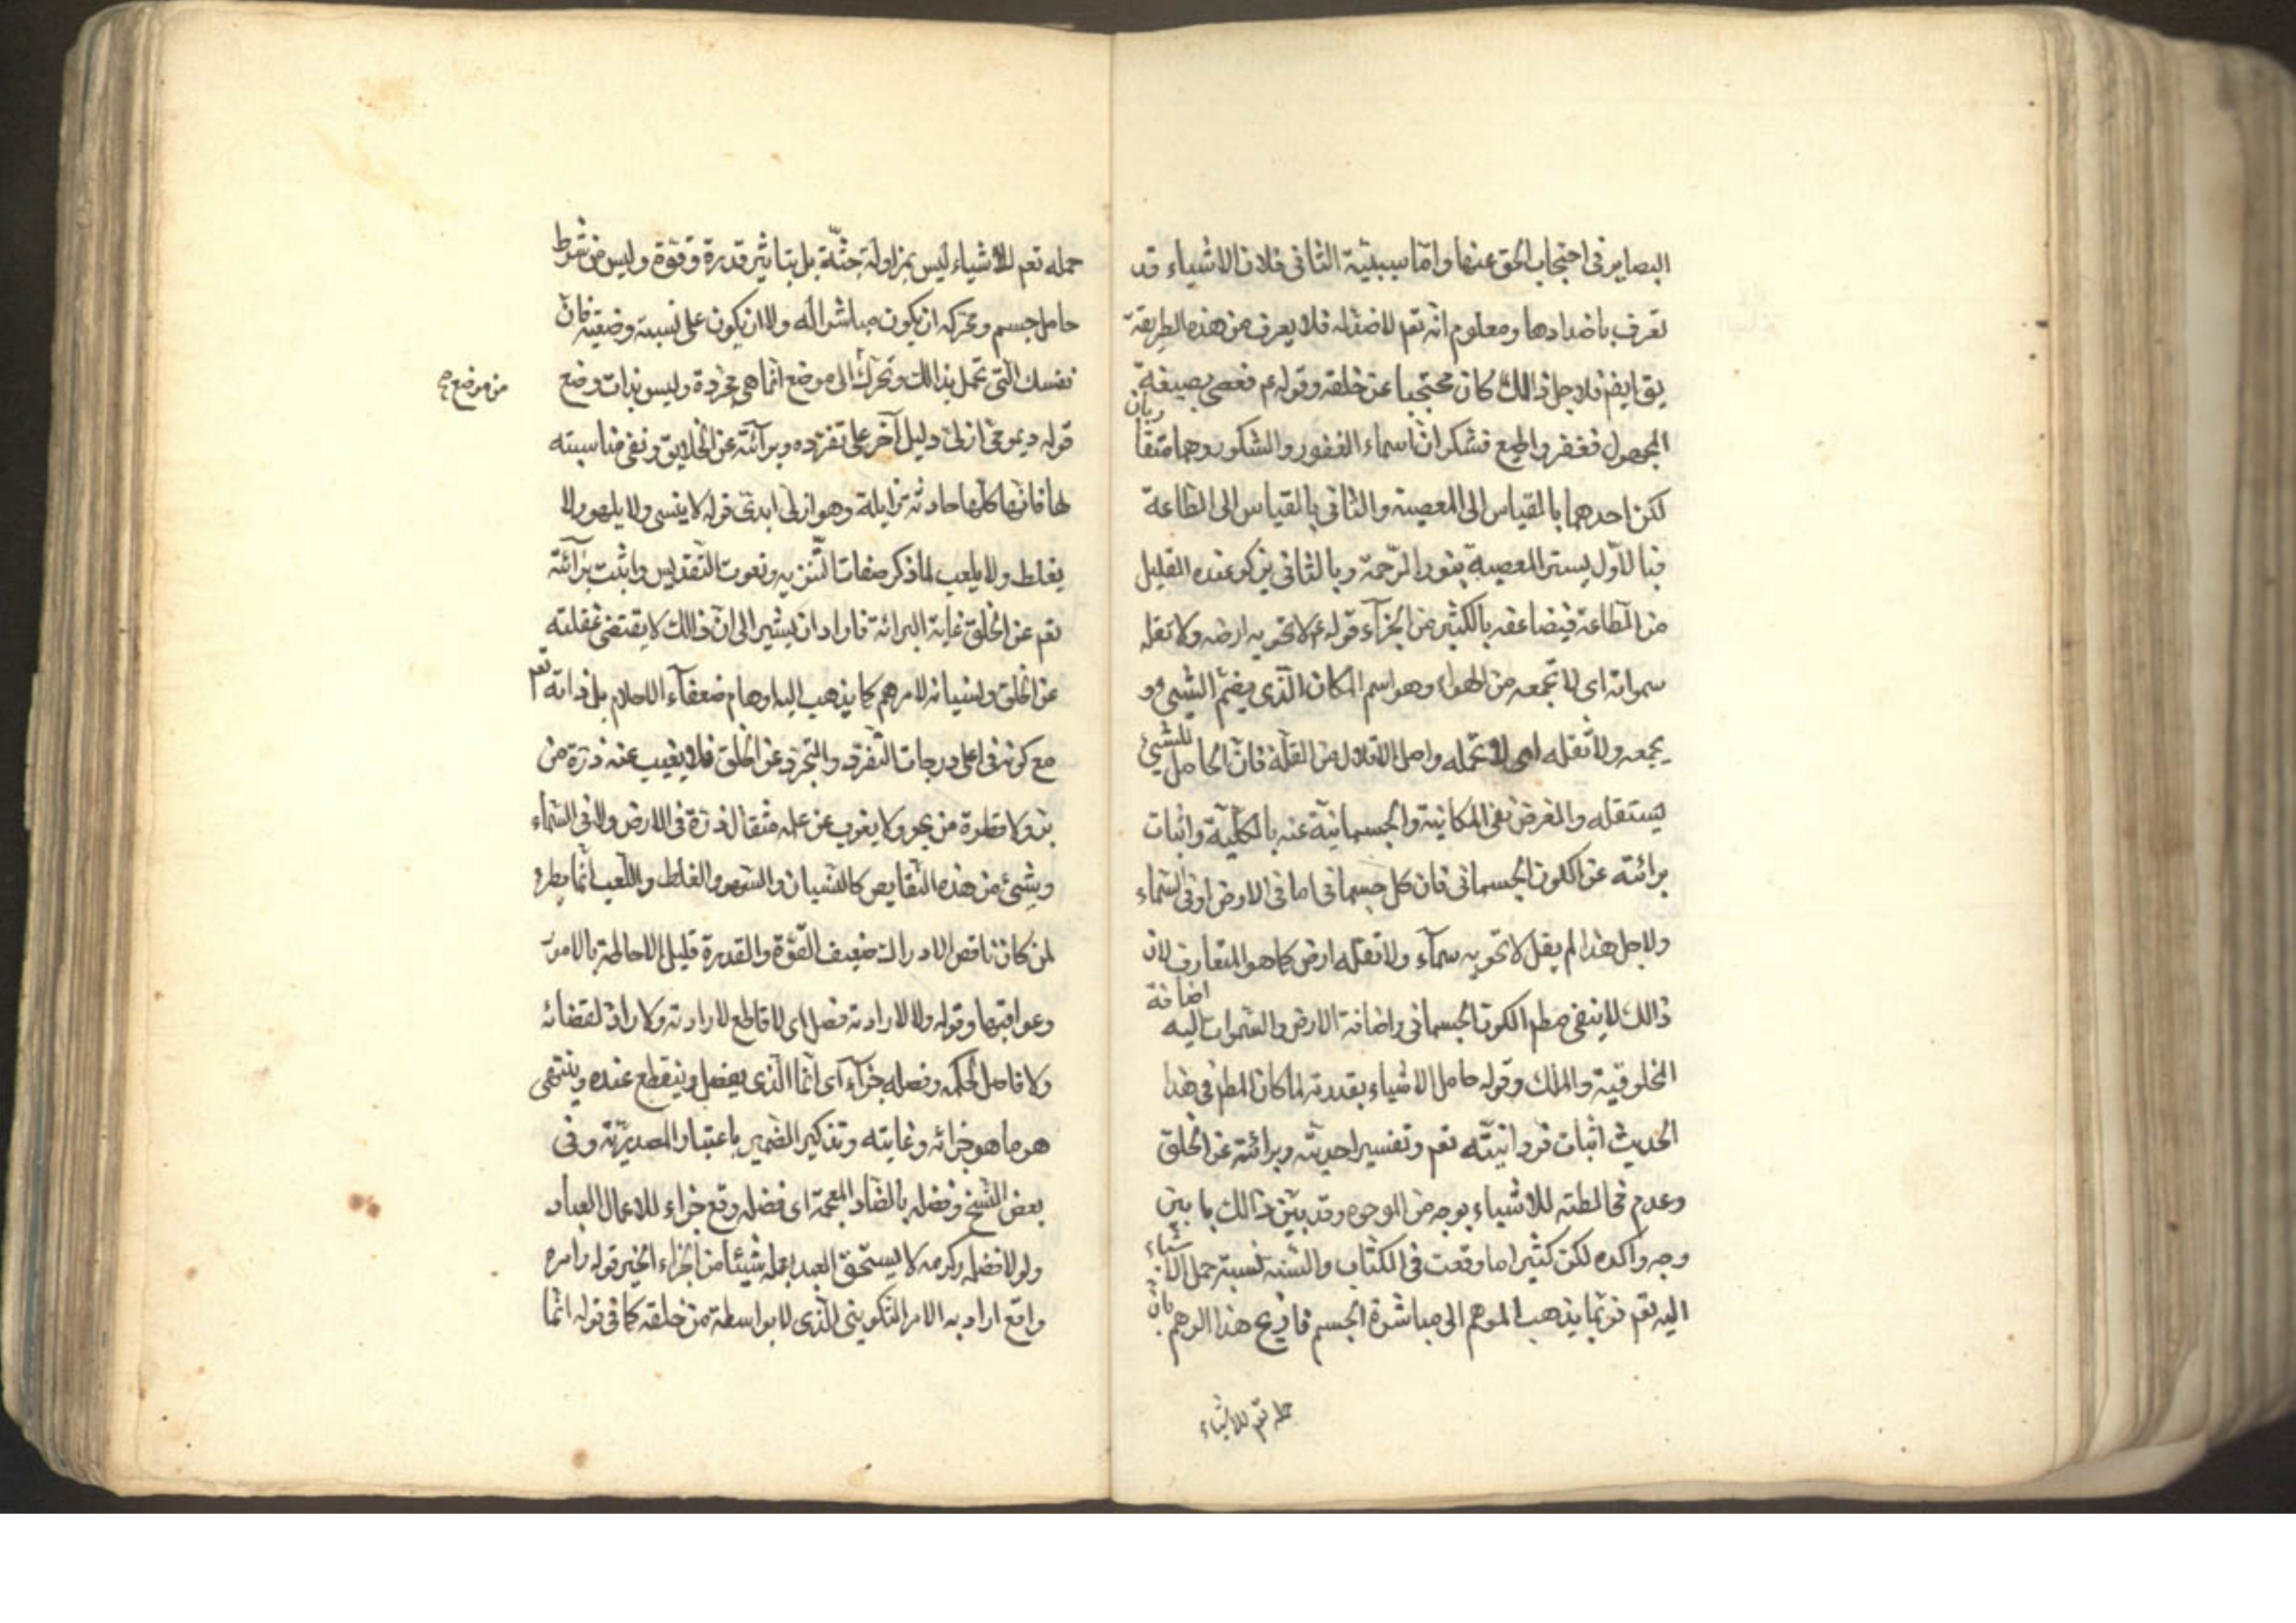 البصاير فى احتجاب الحق عنها وامّا سببيّة الثانى فلان الاشياء قد
تعرف باضدادها ومعلوم انّه تعم لا ضدّ له فلا يعرف من هذه الطريقة
يق ايضم فلاجل ذالك كان محتجبا عن خلقه وقوله عم فعصى بصيغة
المجهول فغفر واطيع فشكر انّ اسماء الغفور والشكور وهما متقا
ربان
لكن احدهما بالقياس الى المعصية والثانى بالقياس الى الطاعة
فبالاوّل يستر المعصية بنور الرّحمة وبالثانى يزكو عنده القليل
من الطاعة فيضاعفه بالكثير من الجزآء قوله عم لا تحويه ارضه ولا تقله
سمواته اى لا تجمعه من الهواء وهو اسم المكان الّذى يضمّ الشيئ و
يجمعه ولا تقله اى لا تحمله واصل الاقلال من القلّة فانّ الحامل للشيئ
يستقله والغرض نفى المكانية والجسمانية عنه بالكلّية واثبات
برائته عن الكون الجسمانى فان كل جسمانى اما فى الارض او فى السّماء
ولاجل هذا لم يقل لا تحويه سمآء ولا تقله ارض كما هو المتعارف لان
ذالك لا ينفى مطم الكون الجسمانى واضافة الارض والسّموات اليه اضافة
المخلوقية والملك وقوله حامل الاشياء بقدرته لما كان المطم فى هذا
الحديث اثبات فردانيّته تعم وتفسير احديّته وبرائته عن الخلق
وعدم مخالطته للاشياء بوجه من الوجوه وقد بيّن ذالك بابين
وجه واكده لكن كثيرا ما وقعت فى الكتاب والسّنة نسبة حمل الاشياء
اليه تعم فربّما يذهب الموهم الى مباشرة الجسم فازيح هذا الوهم بانّ
حمله تعم للاشياء
حمله تعم للاشياء ليس بمزاولة جثّة بل بتاثير قدرة وقوّة وليس من شرط
حامل جسم ومحركه ان يكون مباشرا له ولا ان يكون على نسبة وضعية فانّ
نفسك الّتى تحمل بدالك وتحرّك الى موضع انّما هى مجرّدة وليس بذات وضع
من موضع صح
قوله ديمومى ازلى دليل آخر على تفرّده وبرآئته عن الخلايق ونفى مناسبته
لها فانّها كلّها حادثة زايلة وهو ازلى ابدىّ قوله لا ينسى ولا يلهو ولا
يغلط ولا يلعب لمّا ذكر صفات التّنزيه ونعوت التّقديس واثبت برآئته
تعم عن الخلق غاية البرائة فاراد ان يشير الى انّ ذالك لا يقتضى غفلته
عن الخلق ونسيانه لامرهم كما يذهب اليه اوهام ضعفآء الاحلام بل ذاته تعم
مع كونه فى اعلى درجات التّفرّد والتجرّد عن الخلق فلا يغيب عنه ذرّة من
بر ولا قطرة من بحر ولا يعزب عن علمه مثقال ذرّة فى الارض ولا فى السّماء
وبشئ من هذه النّقايص كالنّسيان والسّهو والغلط واللّعب انّما يطرء
لمن كان ناقص الادراك ضعيف القوّة والقدرة قليل الاحاطة بالامور
وعواقبها وقوله ولا لارادته فصل اى لا قاطع لارادته ولا رادّ لقضائه
ولا فاصل لحكمه وفصله جزآء اى انّما الّذى يفصل وينقطع عنده وينتهى
هو ما هو جزائه وغايته وتذكير الضمير باعتبار المصدريّة وفى
بعض النّسخ وفضله بالضّاد المعجمة اى فضله وقع جزاء للاعمال العباد
ولولا فضله وكرمه لا يستحقّ العبد بعمله شيئا من الجزاء الخير قوله وامره
واقع اراد به الامر التّكوينى الّذى لا بواسطة من خلقه كما فى قوله انّما